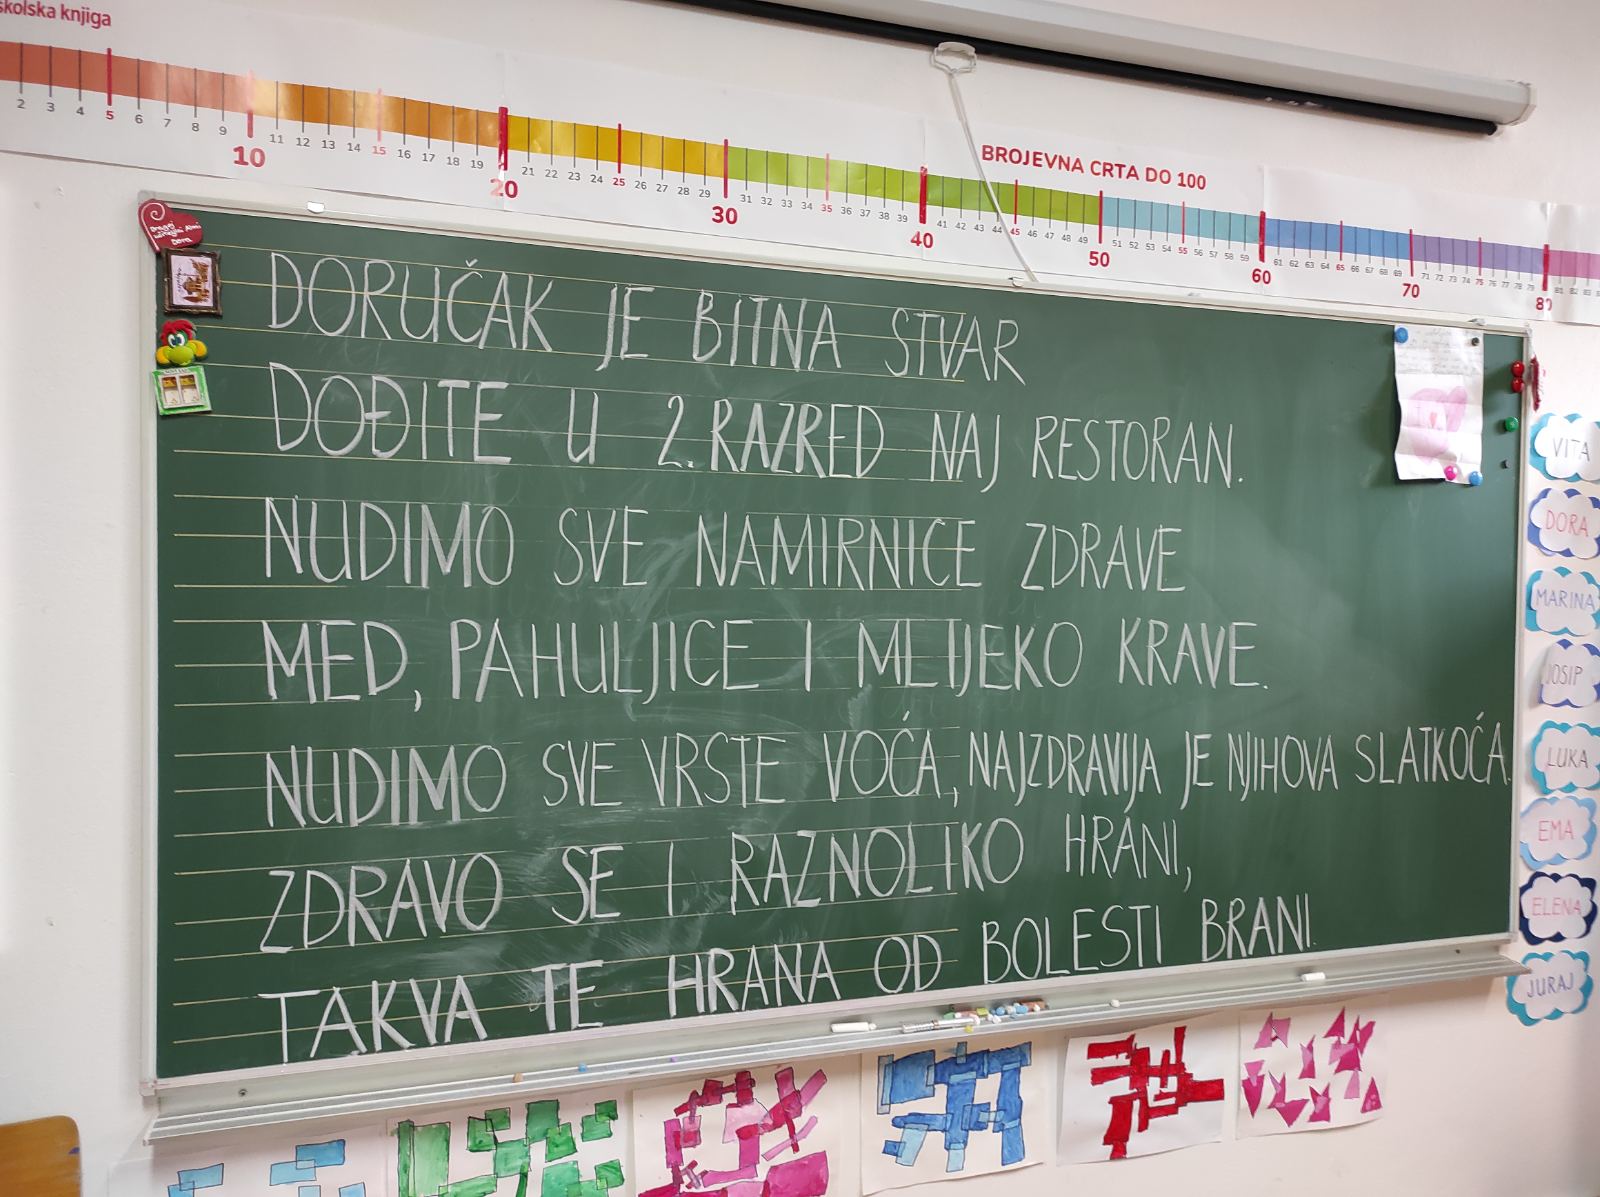 školska knjiga
2 3 4 5 6 7 8 9 10 11 12 13 14 15 16 17 18 19 20 21 22 23 24 25 26 27 28 29 30 31 32 33 34 35 36 37 38 39 40 41 42 43 44 45 46 47 48 49 50 51 52 53 54 55 56 57 58 59 60 61 62 63 64 65 66 67 68 69 70 71 72 73 74 75 76 77 78 79 80 81 82 83
BROJEVNA CRTA DO 100
DORUČAK JE BITNA STVAR
DOĐITE U 2. RAZRED NAJ RESTORAN.
NUDIMO SVE NAMIRNICE ZDRAVE
MED, PAHULJICE I MLIJEKO KRAVE.
NUDIMO SVE VRSTE VOĆA, NAJZDRAVIJA JE NJIHOVA SLATKOĆA.
ZDRAVO SE I RAZNOLIKO HRANI,
TAKVA TE HRANA OD BOLESTI BRANI.
Dragoj učiteljici
Dora
VITA
DORA
MARINA
JOSIP
LUKA
EMA
ELENA
JURAJ